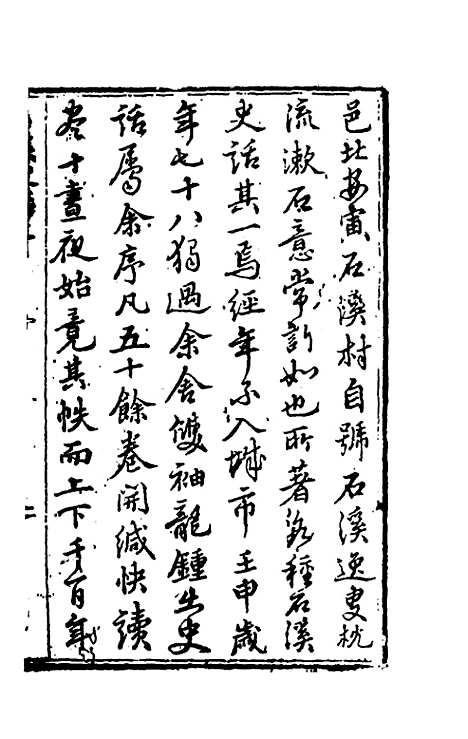 邑北安寅石溪村自號石溪逸叟枕
流漱石意常訢如也所著數種石溪
史話其一焉經年不入城市壬申歲
年七十八猶過余舍雙袖龍鍾出史
話屬余序凡五十餘卷開緘快讀
盡十晝夜始竟其帙而上下千百年